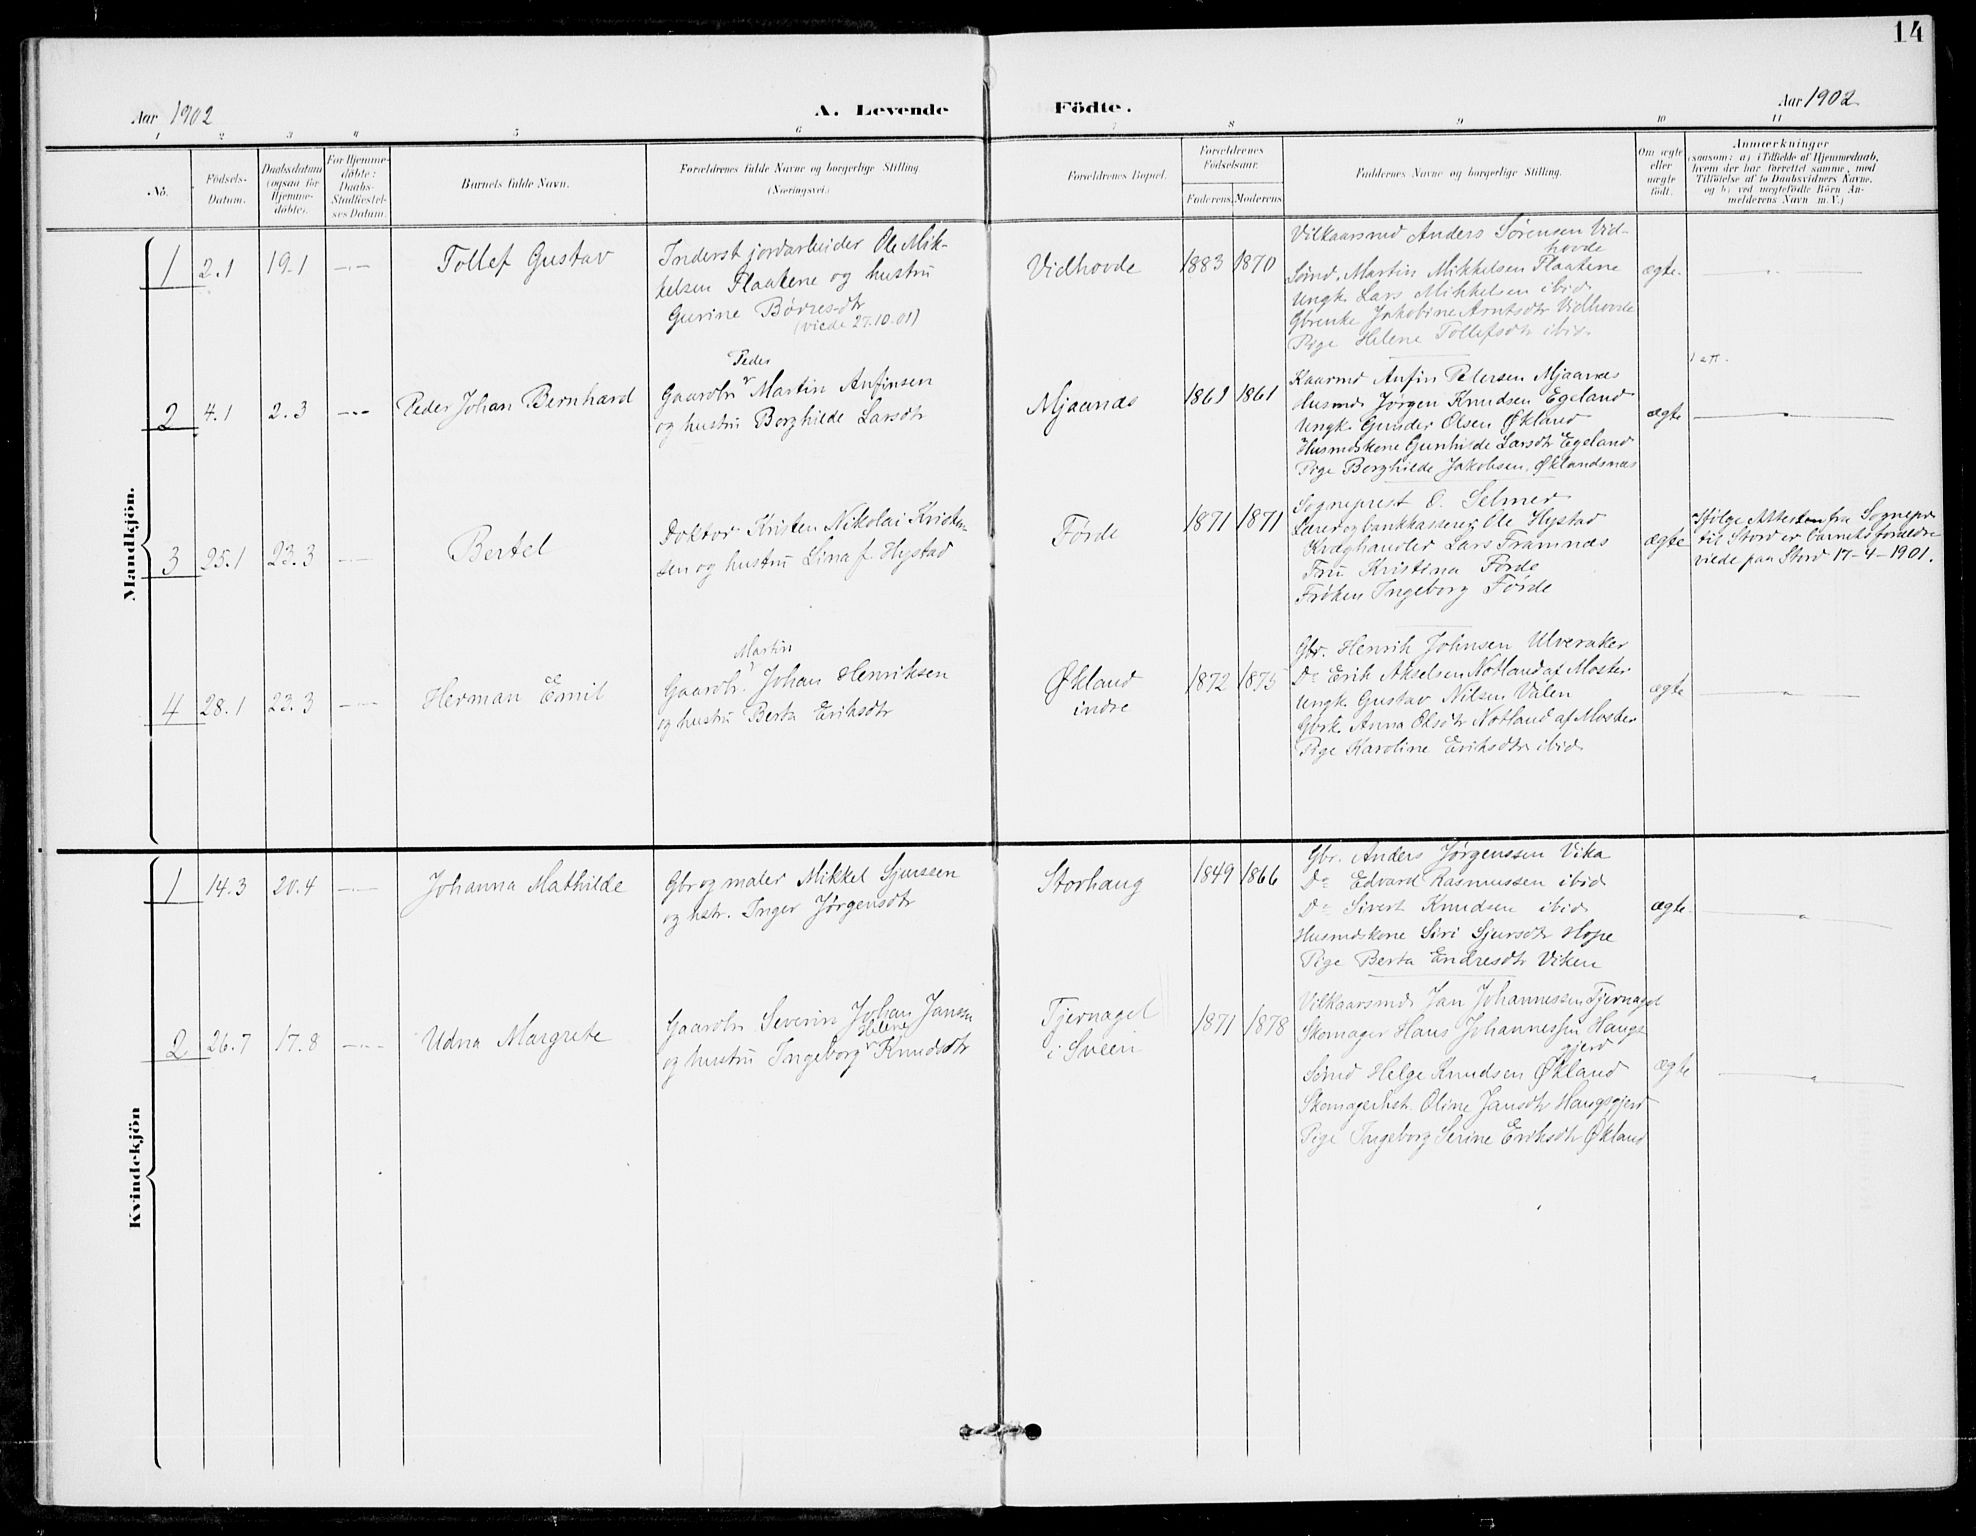 14
Aar 1902
A. Levende Födte.
Aar 1902
1 2 3 4 5 6 7 8 9 10 11
No.
Födsels-
Datum.
Daabsdatum
(ogsaa for
Hjemme-
döbte).
For Hjemme-
döbte:
Daabs-
Stadfæstel-
ses Datum.
Barnets fulde Navn.
Forældrenes fulde Navne og borgerlige Stilling
(Næringsvei.)
Forældrenes Bopæl.
Forældrenes
Födselsaar.
Faderens. Moderens.
Faddernes Navne og borgerlige Stilling.
Om ægte
eller
uægte
født.
Anmærkninger
(saasom: a) i Tilfælde af Hjemmedaab,
hvem der har forrettet samme, med
Tilföielse af to Daabsvidners Navne,
og b) ved uægtefödte Börn An-
melderens Navn m. V.)
Mandkjön.
1 2.1 19.1 —"—
Tollef Gustav
Inderst jordarbeider Ole Mik-
kelsen Flaatene og hustru
Gurine Børresdtr
(viede 27.10.01)
Vidhovde
1883 1870
Vilkaarsmd Anders Sørensen Vid-
hovde
Sømd. Martin Mikkelsen Flaatene
Ungk. Lars Mikkelsen ibid.
Gbrenke Jakobine Arntsdtr Vidhovde
Pige Helene Tollefsdtr ibid.
ægte.
2 4.1 2.3 —"—
Peder Johan Bernhard
Peder
Gaardbr v Martin Anfinsen
og hustru Borghilde Larsdtr
Mjaanæs
1869 1861
Kaarmd Anfin Petersen Mjaanæs
Husmd Jørgen Knudsen Egeland
Ungk. Gunder Olsen Økland
Husmdskone Gunhilde Larsdtr Egeland
Pige Borghilde Jakobsen, Øklandsnæs
ægte
3 25.1 23.3 —"—
Bertel
Doktor Kristen Nikolai Kristen-
sen og hustru Lina f. Hystad
Førde
1871 1871
Sogneprest O. Selmer
Lærer og bankkasserer Ole Hystad
Kræghandler Lars Framnæs
Fru Kristina Førde
Frøken Ingeborg Førde
ægte
Ifølge Attest fra Sognepr.
til Stord er barnets forældre
viede paa Stord 17-4-1901.
4 28.1 23.3 —"—
Herman Emil
Martin
Gaardbr. v Johan Henriksen
og hustru Berta Eriksdtr
Økland
indre
1872 1875
Gbr. Henrik Johnsen Ulveraker
Do Erik Akselsen Notland af Moster
Ungk. Gustav Nilsen Valen
Gbrk. Anna Olsdtr Notland af Moster
Pige Karoline Eriksdtr ibid
ægte
Kvindekjön
1 14.3 20.4 —"—
Johanna Mathilde
Gbr og maler Mikkel Sjurssen
og hstr. Inger Jørgensdtr
Storhaug
1849 1866
Gbr. Anders Jørgenssen Vika
Do Edvard Rasmussen ibid
Do Sivert Knudsen ibid
Husmdskone Siri Sjursdtr Hope
Pige Berta Endresdtr Viken
ægte.
2 26.7 17.8 —"—
Udna Margrete
Gaardbr. Severin Johan Jansen
Helene
og hustru Ingeborg v Knudsdtr
Tjernagel
i Sveen
1871 1878
Vilkaarsmd. Jan Johannessen Tjernagel
Skomager Hans Johannessen Haugs-
gjerd
Sømd Helge Knudsen Økland
Skomagerhst. Oline Jansdtr Haugsgjerd
Pige Ingeborg Serine Eriksdtr Økland
ægte